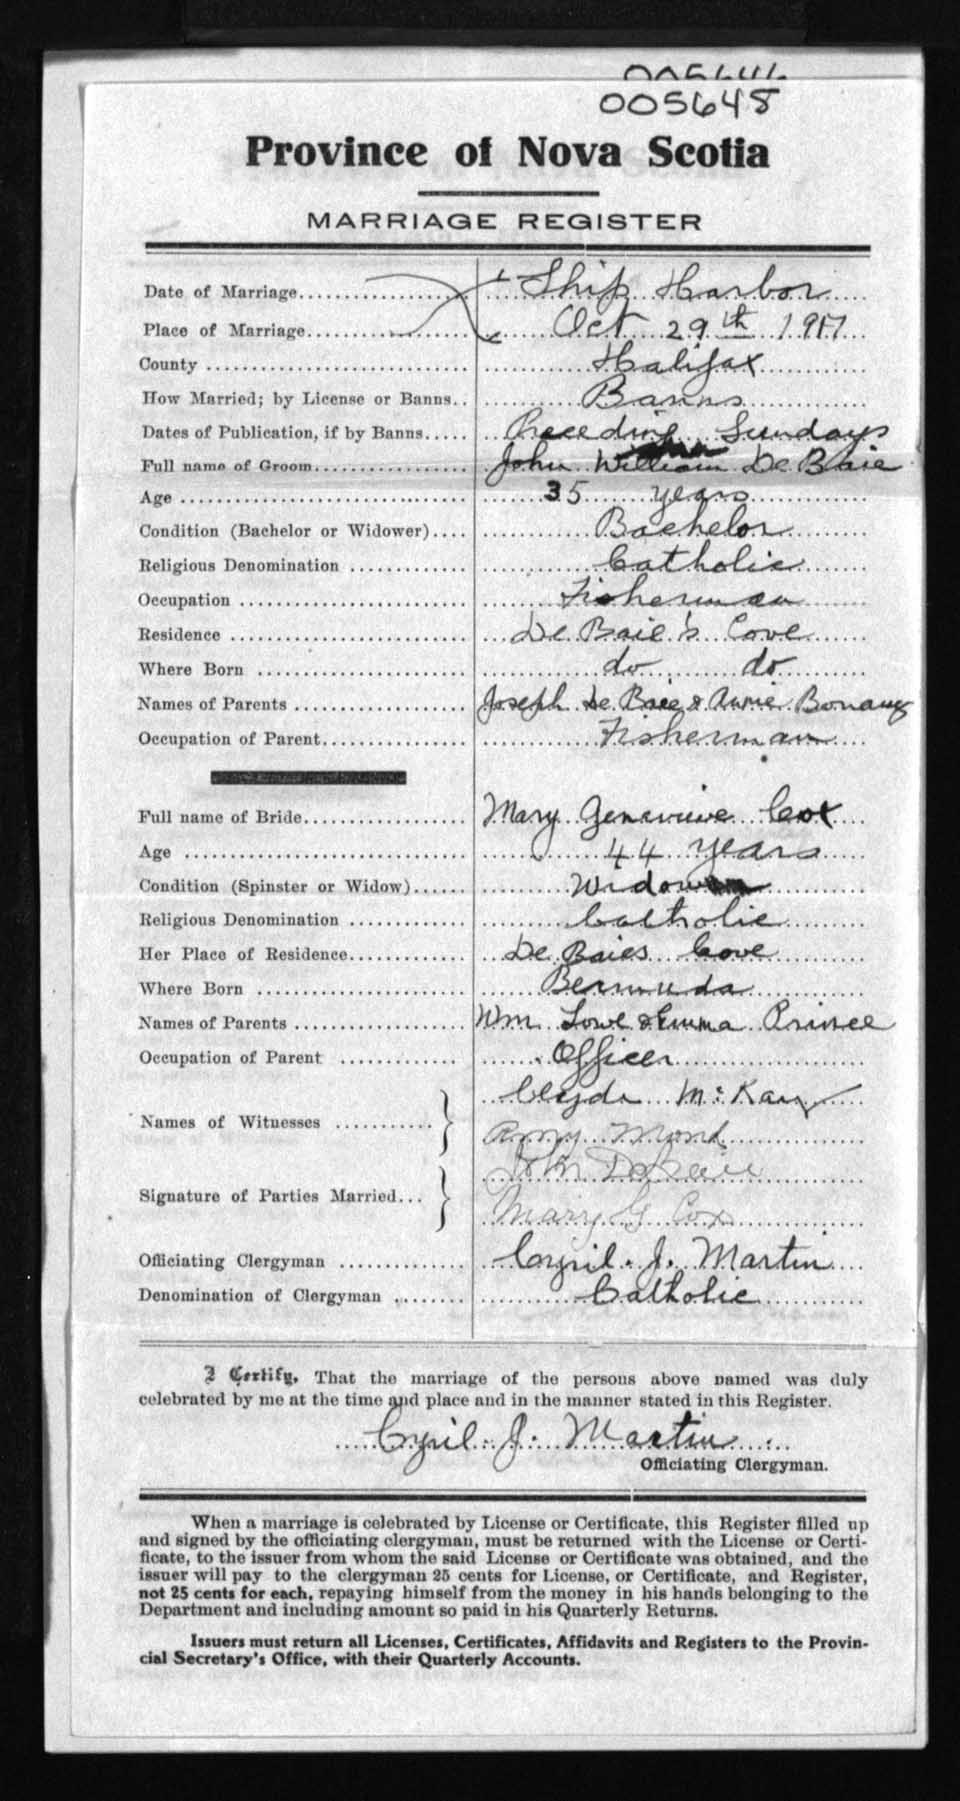 005648
Province of Nova Scotia
MARRIAGE REGISTER
Date of Marriage Ship Harbor
Place of Marriage Oct 29th 1917
County Halifax
How Married; by License or Banns Banns
Dates of Publication, if by Banns Preceding Sundays
Full name of Groom John William De Baie
Age 35 years
Condition (Bachelor or Widower) Bachelor
Religious Denomination Catholic
Occupation Fisherman
Residence De Baie's Cove
Where Born do do
Names of Parents Joseph De Baie & Annie Bonang
Occupation of Parent Fisherman
Full name of Bride Mary Genevieve Cox
Age 44 years
Condition (Spinster or Widow) Widow
Religious Denomination Catholic
Her Place of Residence De Baies Cove
Where Born Bermuda
Names of Parents Wm Lowe & Emma Prince
Occupation of Parent Officer
Clyde McKay
Names of Witnesses
Mond
John DeBaie
Signature of Parties Married
Mary G Cox
Officiating Clergyman Cyril. J. Martin
Denomination of Clergyman Catholic
I Certify, That the marriage of the persons above named was duly
celebrated by me at the time and place and in the manner stated in this Register.
Cyril. J. Martin
Officiating Clergyman.
When a marriage is celebrated by License or Certificate, this Register filled up
and signed by the officiating clergyman, must be returned with the License or Certi-
ficate, to the issuer from whom the said License or Certificate was obtained, and the
issuer will pay to the clergyman 25 cents for License, or Certificate, and Register,
not 25 cents for each, repaying himself from the money in his hands belonging to the
Department and including amount so paid in his Quarterly Returns.
Issuers must return all Licenses, Certificates, Affidavits and Registers to the Provin-
cial Secretary's Office, with their Quarterly Accounts.